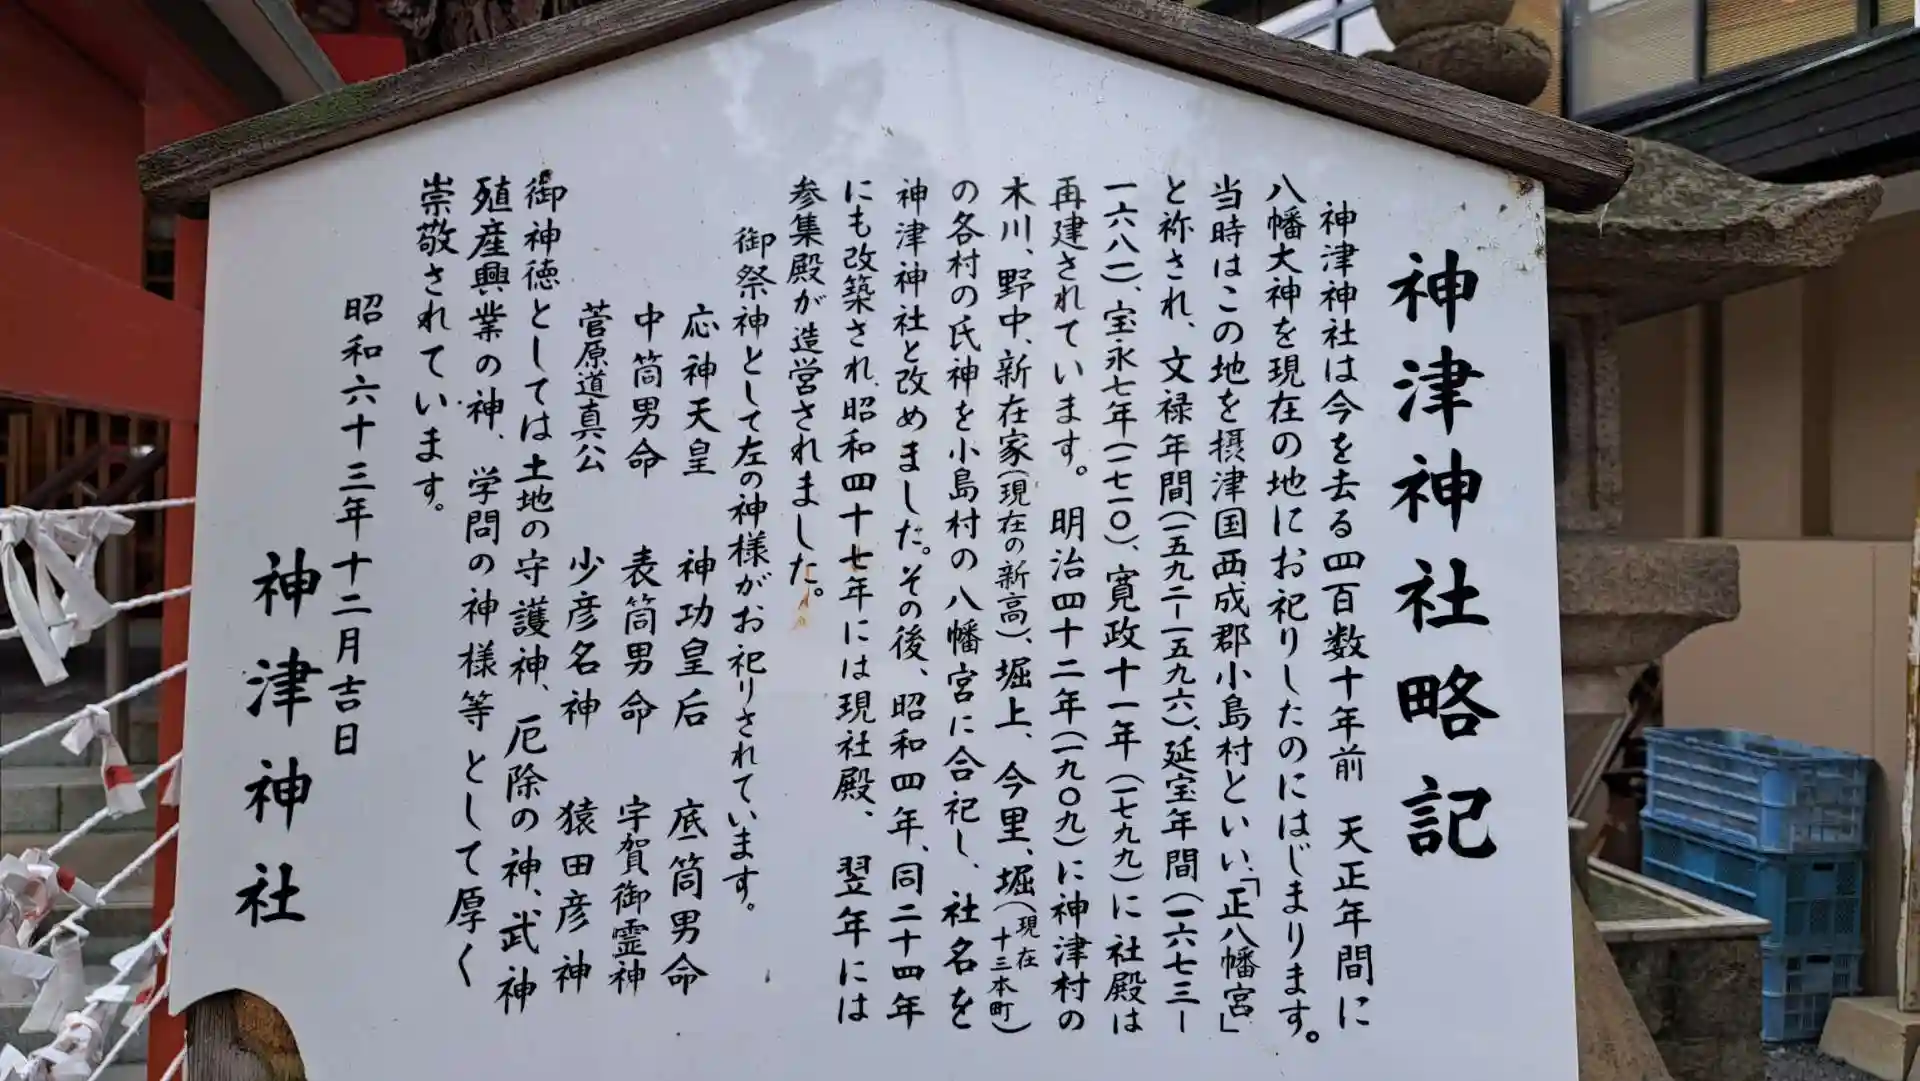 神津神社略記
神津神社は今を去る四百数十年前 天正年間に
八幡大神を現在の地にお祀りしたのにはじまります。
当時はこの地を摂津国西成郡小島村といい、「正八幡宮」
と祢され、文禄年間(一五九二ー一五九六)、延宝年間(一六七三ー
一六八一)、宝永七年(一七一〇)、寛政十一年(一七九九)に社殿は
再建されています。 明治四十二年(一九〇九)に神津村の
木川、野中、新在家(現在の新高)、堀上、今里、堀(現在十三本町)
の各村の氏神を小島村の八幡宮に合祀し、社名を
神津神社と改めました。その後、昭和四年、同二十四年
にも改築され、昭和四十七年には現社殿、翌年には
参集殿が造営されました。
御祭神として左の神様がお祀りされています。
応神天皇 神功皇后 底筒男命
中筒男命 表筒男命 宇賀御霊神
菅原道真公 少彦名神 猿田彦神
御神徳としては土地の守護神、厄除の神、武神
殖産興業の神、学問の神様等として厚く
崇敬されています。
昭和六十三年十二月吉日
神津神社